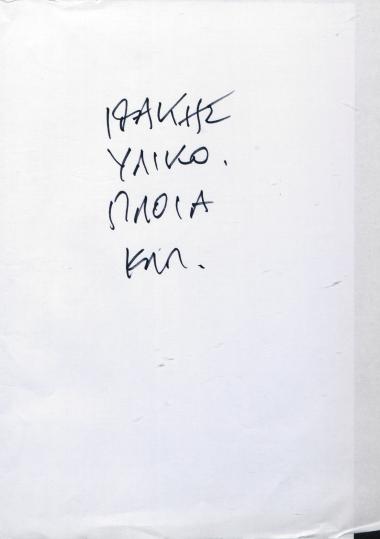 ΙΘΑΚΗΣ
ΥΛΙΚΟ.
ΠΛΟΙΑ
ΚΛΠ.